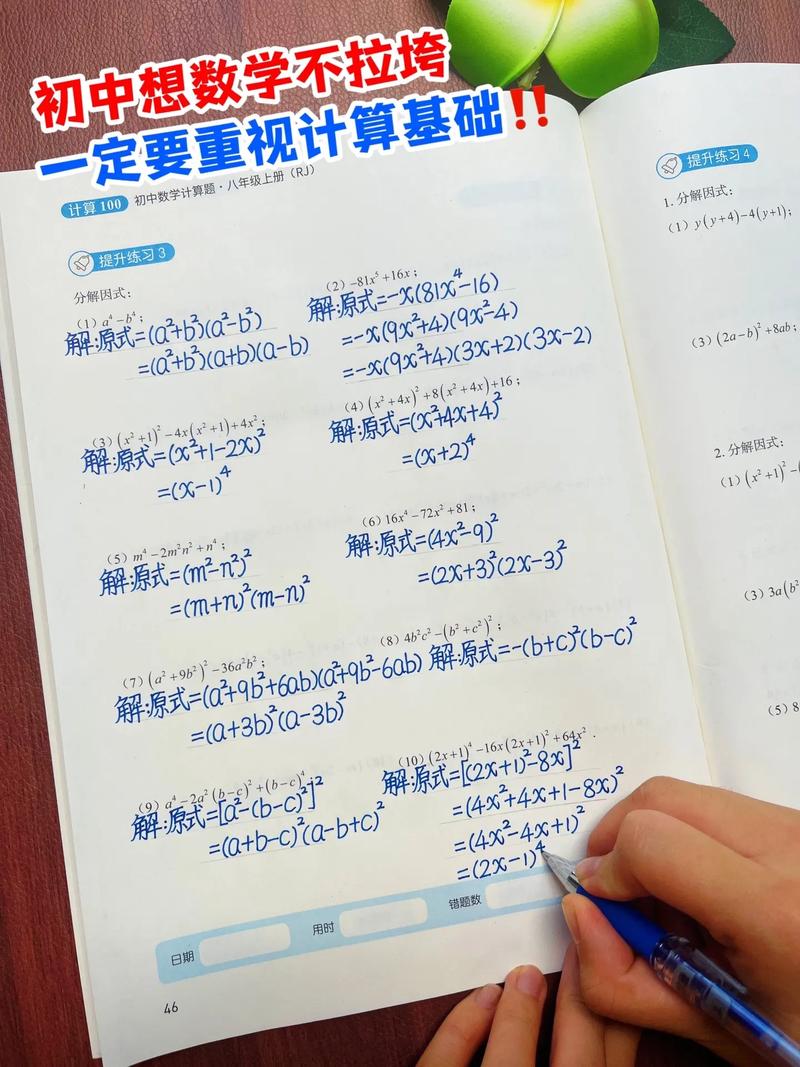 初中想数学不拉垮
一定要重视计算基础!!
计算100 初中数学计算题·八年级上册（RJ）
提升练习3
分解因式：
（1）a⁴-b⁴；
解:原式=(a²+b²)(a²-b²)
=(a²+b²)(a+b)(a-b)
（2）-81x⁵+16x；
解:原式=-x(81x⁴-16)
=-x(9x²+4)(9x²-4)
=-x(9x²+4)(3x+2)(3x-2)
（3）(x²+1)²-4x(x²+1)+4x²；
解:原式=(x²+1-2x)²
=(x-1)⁴
（4）(x²+4x)²+8(x²+4x)+16；
解:原式=(x²+4x+4)²
=(x+2)⁴
（5）m⁴-2m²n²+n⁴；
解:原式=(m²-n²)²
=(m+n)²(m-n)²
（6）16x⁴-72x²+81；
解:原式=(4x²-9)²
=(2x+3)²(2x-3)²
（7）(a²+9b²)²-36a²b²；
解:原式=(a²+9b²+6ab)(a²+9b²-6ab)
=(a+3b)²(a-3b)²
（8）4b²c²-(b²+c²)²；
解:原式=-(b+c)²(b-c)²
（9）a⁴-2a²(b-c)²+(b-c)⁴；
解:原式=[a²-(b-c)²]²
=(a+b-c)²(a-b+c)²
（10）(2x+1)⁴-16x(2x+1)²+64x².
解:原式=[(2x+1)²-8x]²
=(4x²+4x+1-8x)²
=(4x²-4x+1)²
=(2x-1)⁴
日期 用时 错题数
46
提升练习4
1.分解因式：
（1）y(y+4)-4(y+1)；
（3）(2a-b)²+8ab；
2.分解因式：
（1）(x²+1)²-
（3）3a(b²
（5）8